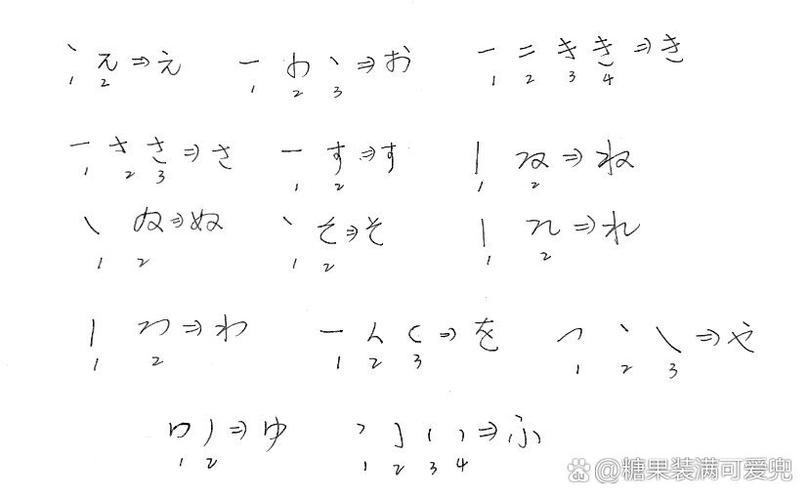 丶 え ⇒ え 一 お 丶 ⇒ お 一 二 き き ⇒ き
1 2 1 2 3 1 2 3 4
一 さ さ ⇒ さ 一 す ⇒ す 丨 ね ⇒ ね
1 2 3 1 2 1 2
丶 ぬ ⇒ ぬ 丶 そ ⇒ そ 丨 れ ⇒ れ
1 2 1 2 1 2
丨 わ ⇒ わ 一 ⇒ を ⇒ や
1 2 1 2 3 1 2 3
⇒ ゆ ⇒ ふ
1 2 1 2 3 4
Baidu @糖果装满可爱兜